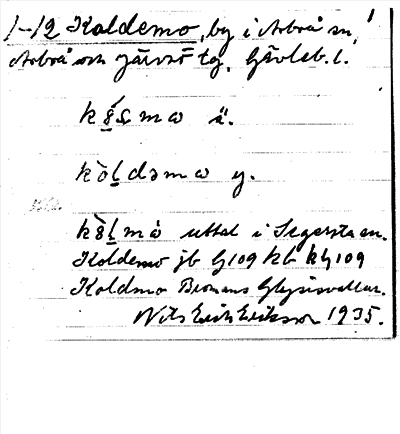 1-12 Koldemo, by i Arbrå sn,
Arbrå och Järvsö tg, Gävleb. l.
ä.
kòldəmω y.
uttal i Segersta sn.
Koldemo jb G109 kb kG109
Koldmo Bromans Glysisvallur.
Nils Erik Eriksson 1935.